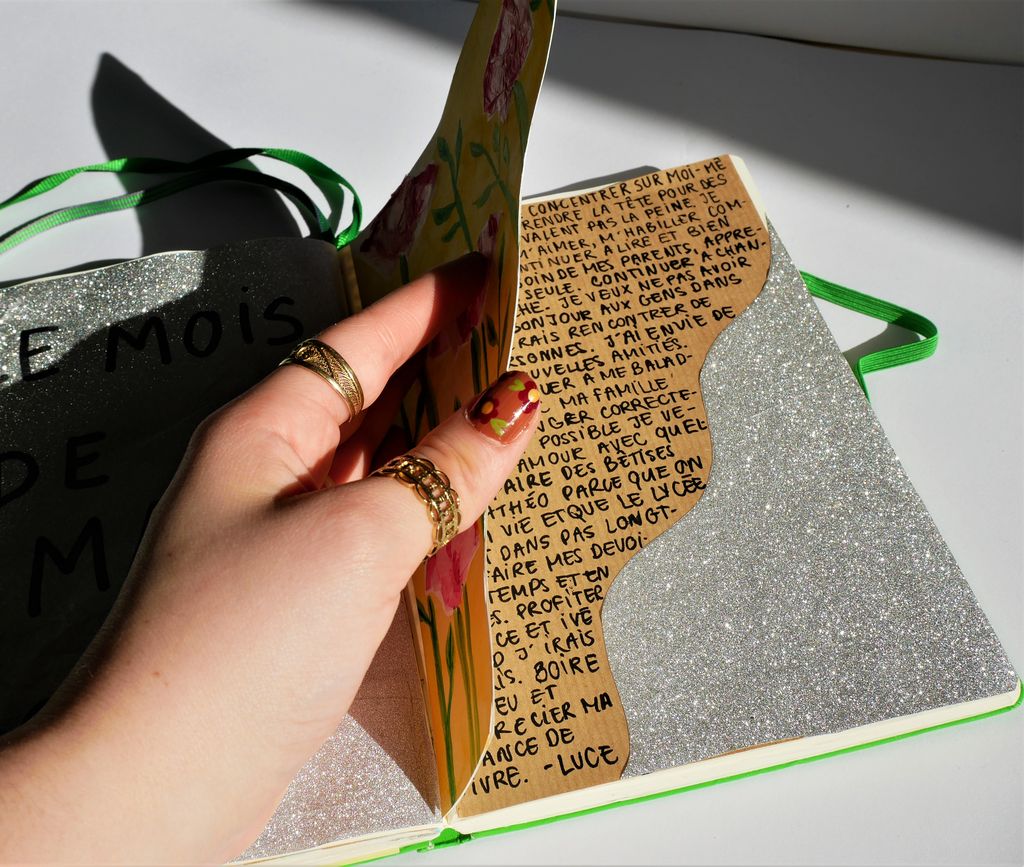 LE MOIS
DE
M
CONCENTRER SUR MOI-MÊ
RENDRE LA TÊTE POUR DES
VALENT PAS LA PEINE. JE
M'AIMER, M'HABILLER COM-
TINUER A LIRE ET BIEN
OIN DE MES PARENTS, APPRE-
SEULE. CONTINUER A CHAN-
CHE. JE VEUX NE PAS AVOIR
BONJOUR AUX GENS DANS
RAIS RENCONTRER DE
SONNES. J'AI ENVIE DE
UVELLES AMITIÉS.
UER A ME BALAD-
MA FAMILLE
GER CORRECTE-
POSSIBLE JE VE-
AMOUR AVEC QUEL
AIRE DES BÊTISES
ATHÉO PARCE QUE ON
VIE ET QUE LE LYCÉE
DANS PAS LONGT-
FAIRE MES DEVOI-
TEMPS ET EN
PROFITER
CE ET IVE
J'IRAIS
IS. BOIRE
EU ET
RECIER MA
ANCE DE
IVRE. -LUCE